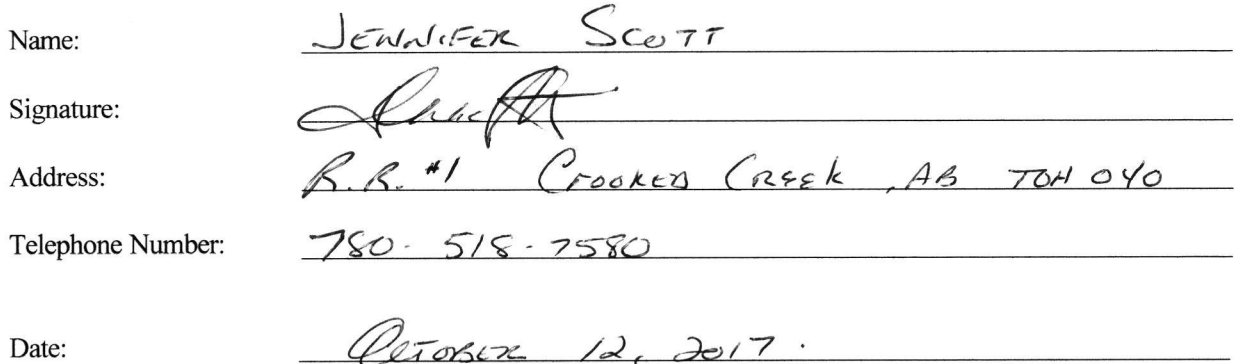 Name: JENNIFER SCOTT
Signature:
Address: R.R. #1 CROOKED CREEK, AB T0H 0Y0
Telephone Number: 780-518-7580
Date: OCTOBER 12, 2017.